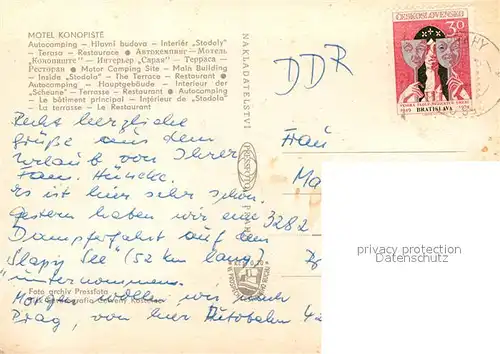 MOTEL KONOPIŠTĚ
Autocamping — Hlavní budova — Interiér „Stodoly"
— Terasa — Restaurace ● Автокемпинг — Мотель
„Конопиште" — Интерьер „Сарая" — Терраса —
Ресторан ● Motor Camping Site — Main Building
— Inside „Stodola" — The Terrace — Restaurant ●
Autocamping — Hauptgebäude — Interieur der
„Scheune" — Terrasse — Restaurant ● Autocamping
— Le bâtiment principal — Intérieur de „Stodola"
— La terrasse — Le Restaurant
Recht herzliche
Grüße aus dem
Urlaub von Ihrer
Fam.
Es ist hier sehr schön.
Gestern haben wir eine
Dampferfahrt auf dem
Slapy See (52 km lang)
unternommen.
Morgen wollen wir nach
Prag, von hier Autobahn
Foto archiv Pressfoto
NAKLADATELSTVÍ
PRESSFOTO
ČESKOSLOVENSKO
30
BRATISLAVA
1949
DDR
Frau
Ma
3282
protection copyright
Danskammer.com